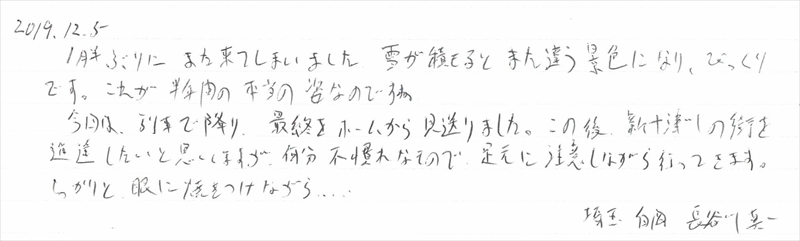 2019.12.5
1月半ぶりに また来てしまいました 雪が積もると また違う景色になり、びっくり
です。これが 本当の 姿なのですね
今回は、列車で降り、最終を ホームから 見送りました。この後、新十津川の街を
したいと思いますが、何分 不慣れなもので、足元に 注意しながら行ってきます。
しっかりと 眼に焼きつけながら‥‥
埼玉 長谷川 真一